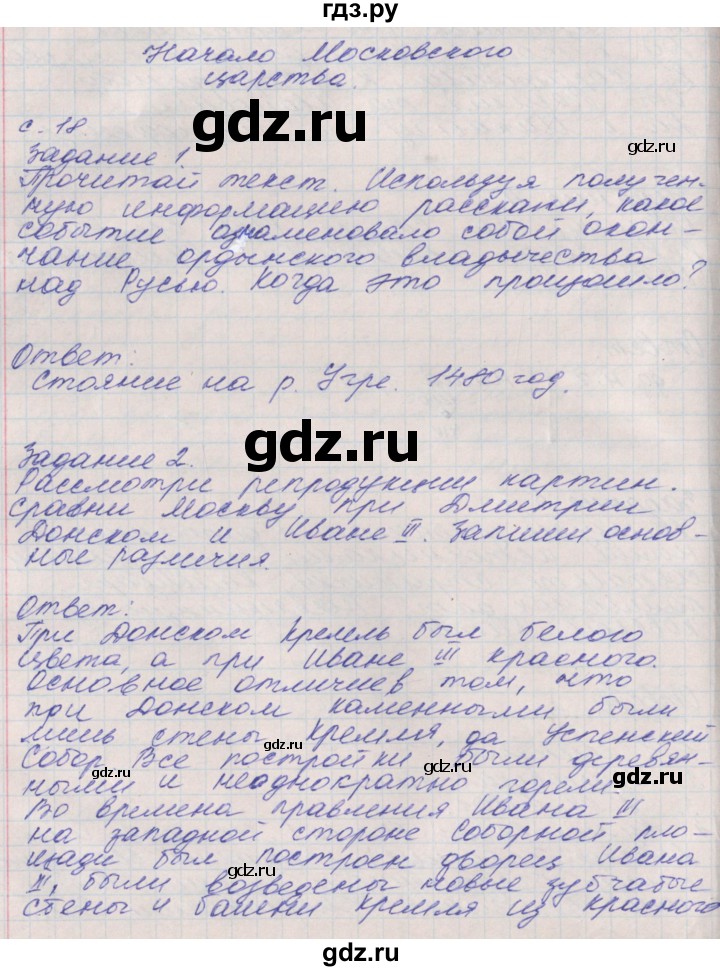 гдз.ру
Начало Московского
царства.
gdz.ru
с. 18.
gdz.ru
Задание 1
Прочитай текст. Используя получен-
ную информацию расскажи, какое
событие ознаменовало собой окон-
чание ордынского владычества
над Русью. Когда это произошло?
gdz.ru
Ответ:
Стояние на р. Угре. 1480 год.
gdz.ru
Задание 2.
Рассмотри репродукции картин.
Сравни Москву при Дмитрии
Донском и Иване III. Запиши основ-
ные различия.
gdz.ru
Ответ:
При Донском Кремль был белого
цвета, а при Иване III красного.
Основное отличие в том, что
при Донском каменными были
лишь стены Кремля, да Успенский
gdz.ru
Собор. Все постройки были деревян-
gdz.ru
ными и неоднократно горели.
Во времена правления Ивана III
на западной стороне Соборной пло-
щади был построен дворец Ивана
gdz.ru
III, были возведены новые зубчатые
стены и башни Кремля из красного
gdz.ru
gdz.ru